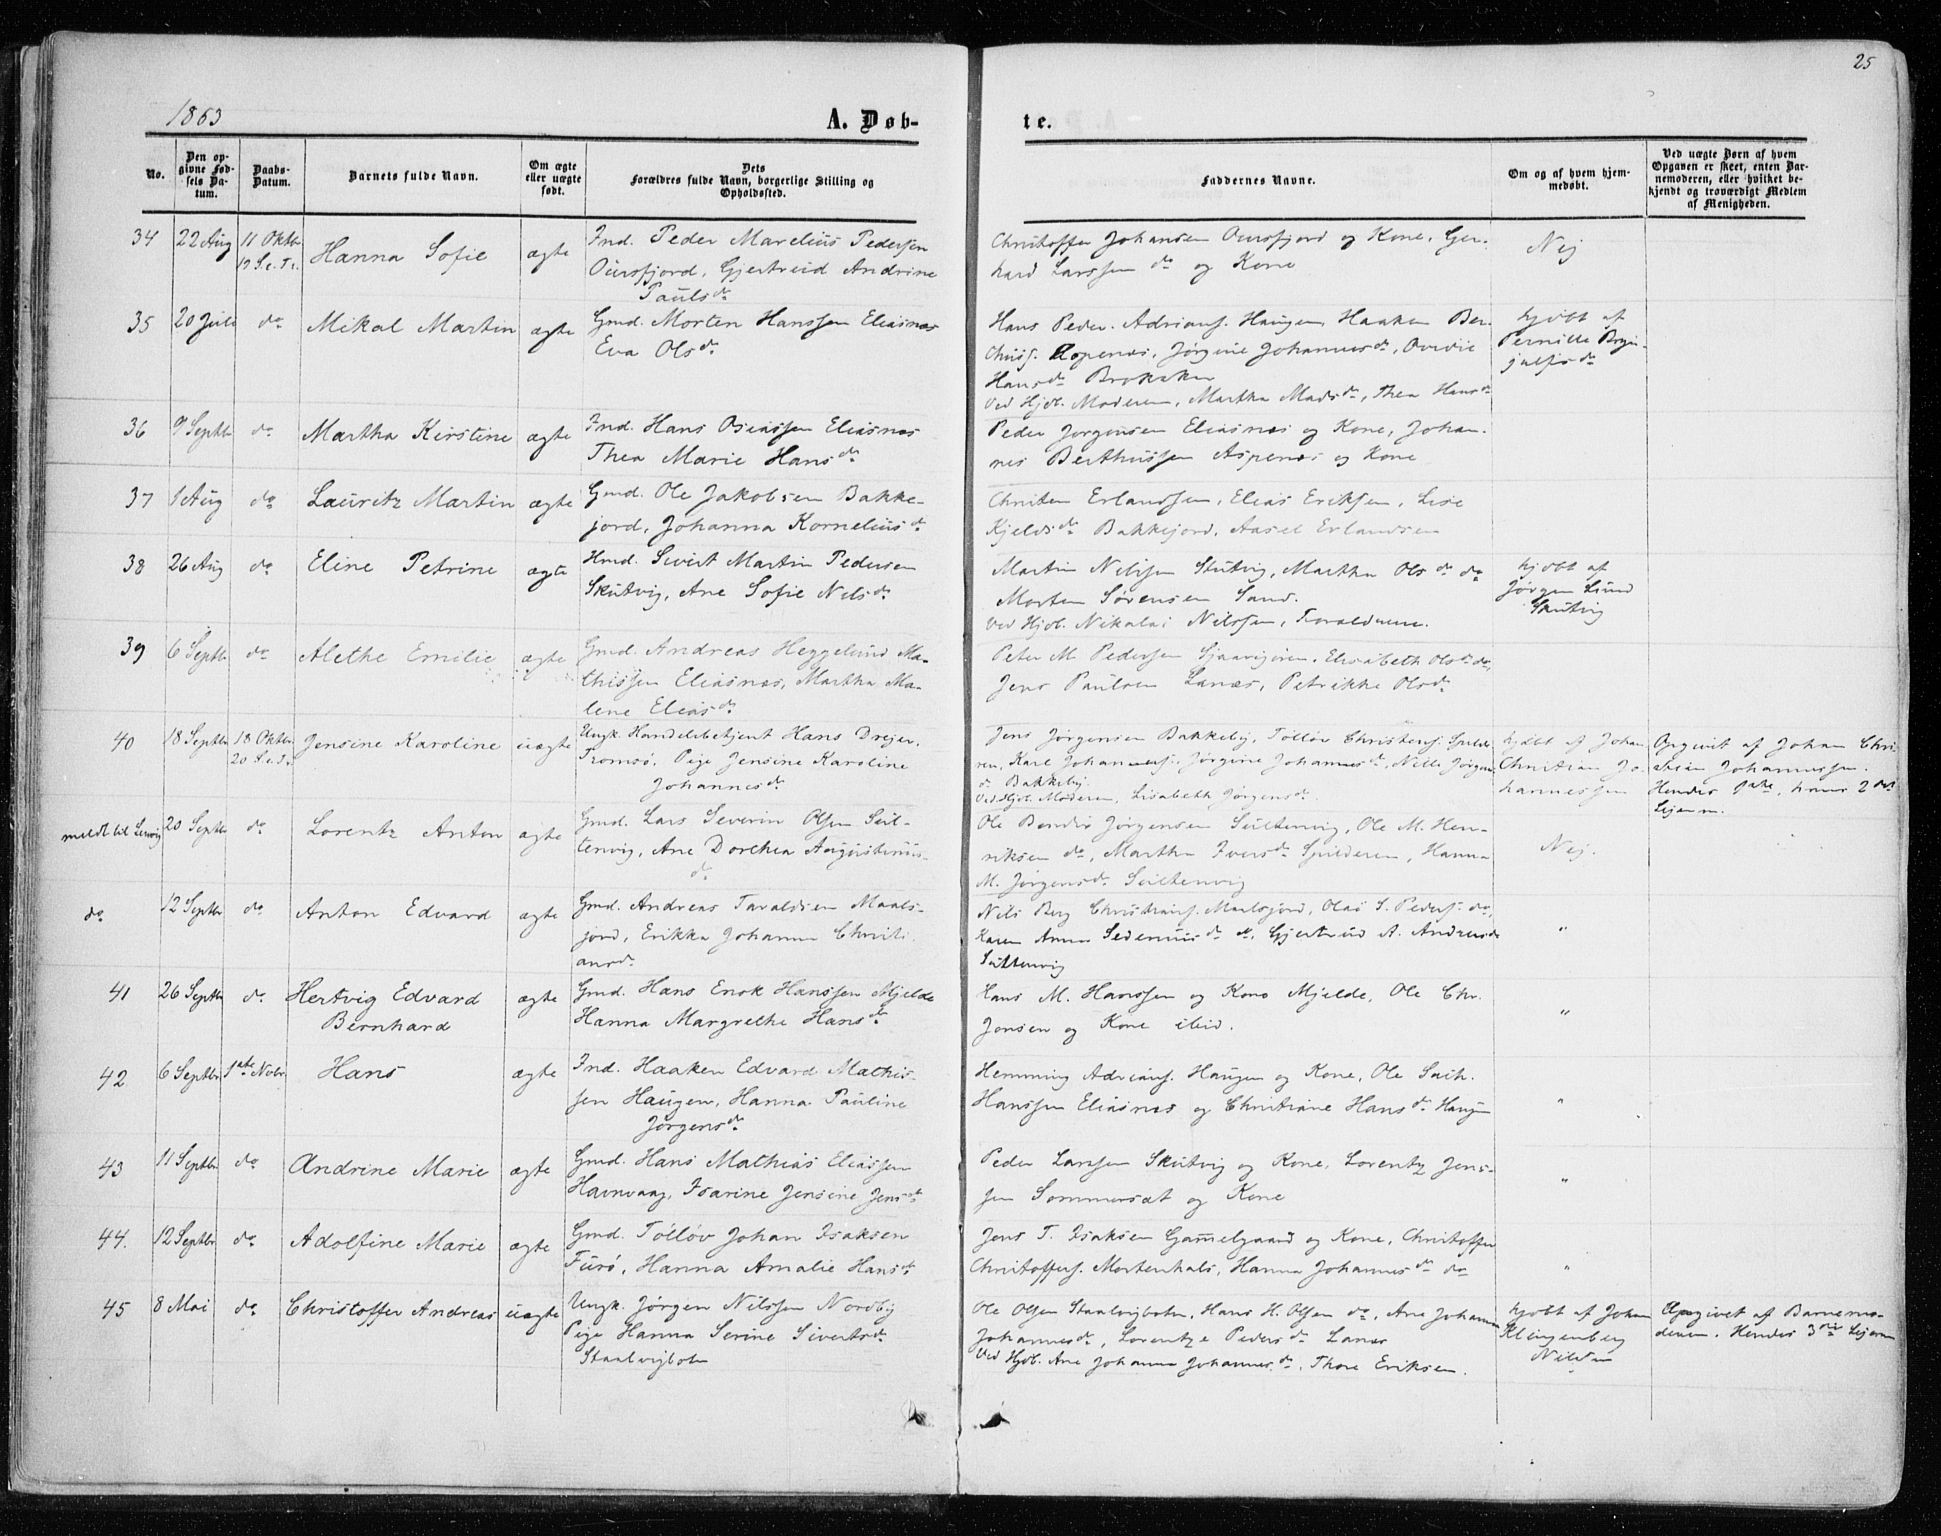 25
1863
A. Døb-
te.
No.
Den op-
givne Fød-
sels Da-
tum.
Daabs-
Datum.
Barnets fulde Navn.
Om ægte
eller uægte
født.
Dets
Forældres fulde Navn, borgerlige Stilling og
Opholdssted.
Faddernes Navne.
Om og af hvem hjem-
medøbt.
Ved uægte Børn af hvem
Opgaven er skeet, enten Bar-
nemoderen, eller hvilket be-
kjendt og troværdigt Medlem
af Menigheden.
34 22 Aug 11 Oktbr Hanna Sofie ægte Ind. Peder Marelius Pedersen
19 S.e.Tr.
Oursfjord, Gjertruid Andrine
Paulsdr
Christoffer Johansen Oursfjord og Kone, Ger-
hard Larssen do og Kone
Nej
35 20 Juli do Mikal Martin ægte Gmd. Morten Hanssen Eliasnes
Eva Olsdr
Hans Peder Adrians. Haugen, Haaken Ber-
Aspenes, Jørgine Johannesdr, Ovedie
Hansdr
Ved Hjdb. Moderen, Martha Madsdr, Thea Hansdr
hjdbt af
Pernille Bryn-
julfsdr
36 9 Septbr do Martha Kirstine ægte Ind. Hans Osiassen Eliasnes
Thea Marie Hansdr
Peder Jørgensen Eliasnes og Kone, Johan-
nes Berthussen Aspenes og Kone
37 1 Aug do Lauritz Martin ægte Gmd. Ole Jakobsen Bakke-
jord, Johanna Korneliusdr
Christen Erlandsen, Elias Eriksen, Lise
Kjeldsdr Bakkejord, Aasel Erlandsen
38 26 Aug do Eline Petrine ægte Hmd. Sivert Martin Pedersen
Skutvig, Ane Sofie Nelsdr
Martin Nilsen Skutvig, Martha Olsdr do
Morten Sørensen Sand.
Ved Hjdb. Nikolai Nilssen, Forældrene.
hjdbt af
Jørgen Lund
Skutvig
39 6 Septbr do Alethe Emilie ægte Gmd. Andreas Heggelund Ma-
thissen Eliasnes, Martha Ma-
lene Eliasdr
Peter M. Pedersen Elisabeth Olsdr do,
Jens Paulsen Lanæs, Petrikke Olsdr
40 18 Septbr 18 Oktbr. Jensine Karoline uægte Ungk. Handelsbetjent Hans Drejer,
20 S.e.Tr.
Tromsø, Pige Jensine Karoline
Johannesdr
Jens Jørgensen Bakkeby, Tølløv Christens. Spilde-
ren, Karl Johanness., Jørgine Johannesdr, Nille Jørgens-
dr Bakkeby.
Ved Hjdb. Moderen, Lisabeth Jørgensdr
hjdbt af Johan
Christian Jo-
hannessen
Opgivet af Johan Chri-
stian Johannessen.
Hendes 1ste, hans 2det
Lejerm.
meldt til Lenvig 20 Septbr do Lorentz Anton ægte Gmd. Lars Severin Olsen Sul-
tenvig, Ane Dorthea Augustinus-
dr
Ole Bendix Jørgensen Sultenvig, Ole M. Hen-
riksen do, Martha Iversdr Spilderen, Hanna
M. Jørgensdr Sultenvig
Nej.
do 12 Septbr do Anton Edvard ægte Gmd. Andreas Taraldsen Maals-
jord, Erikka Johanna Christi-
ansdr
Nils Berg Christians. Maalsjord, Olai S. Peders. do,
Karen Anna Sedeniusdr do, Gjertrud A. Andreasdr
Sultenvig
"
41 26 Septbr do Hertvig Edvard
Bernhard
ægte Gmd. Hans Enok Hanssen Mjelde
Hanna Margrethe Hansdr
Hans M. Hanssen og Kone Mjelde, Ole Chr.
Jensen og Kone ibid.
"
42 6 Septbr 1ste Novbr. Hans ægte Ind. Haaken Edvard Mathis-
sen Haugen, Hanna Pauline
Jørgensdr
Hemming Adrians. Haugen og Kone, Ole
Hanssen Eliasnes og Christiane Hansdr Haugen
"
43 11 Septbr do Andrine Marie ægte Gmd. Hans Mathias Eliassen
Havnvaag, Isarine Jensine Jensdr
Peder Larssen Skutvig og Kone, Lorentz Jens-
sen Sommersæt og Kone
"
44. 12 Septbr. do Adolfine Marie ægte Gmd. Tølløv Johan Isaksen
Furø, Hanna Amalie Hansdr
Jens T. Isaksen Gammelgaard og Kone, Christoffer
Christoffers. Mortenhals, Hanna Johannesdr do
"
45 8 Mai do Christoffer Andreas uægte Ungk. Jørgen Nilssen Nordby
Pige Hanna Serine Sivertsdr
Staalvigbotn
Ole Olsen Staalvigbotn, Hans H. Olsen do, Ane Johanna
Johannesdr, Lorentze Pedersdr Lanæs
Ved Hjdb. Ane Johanna Johannesdr, Thore Eriksen.
hjdbt af Johan
Klingenberg
Nilsen
Opgivet af Barnemo-
deren. Hendes 3die Lejerm